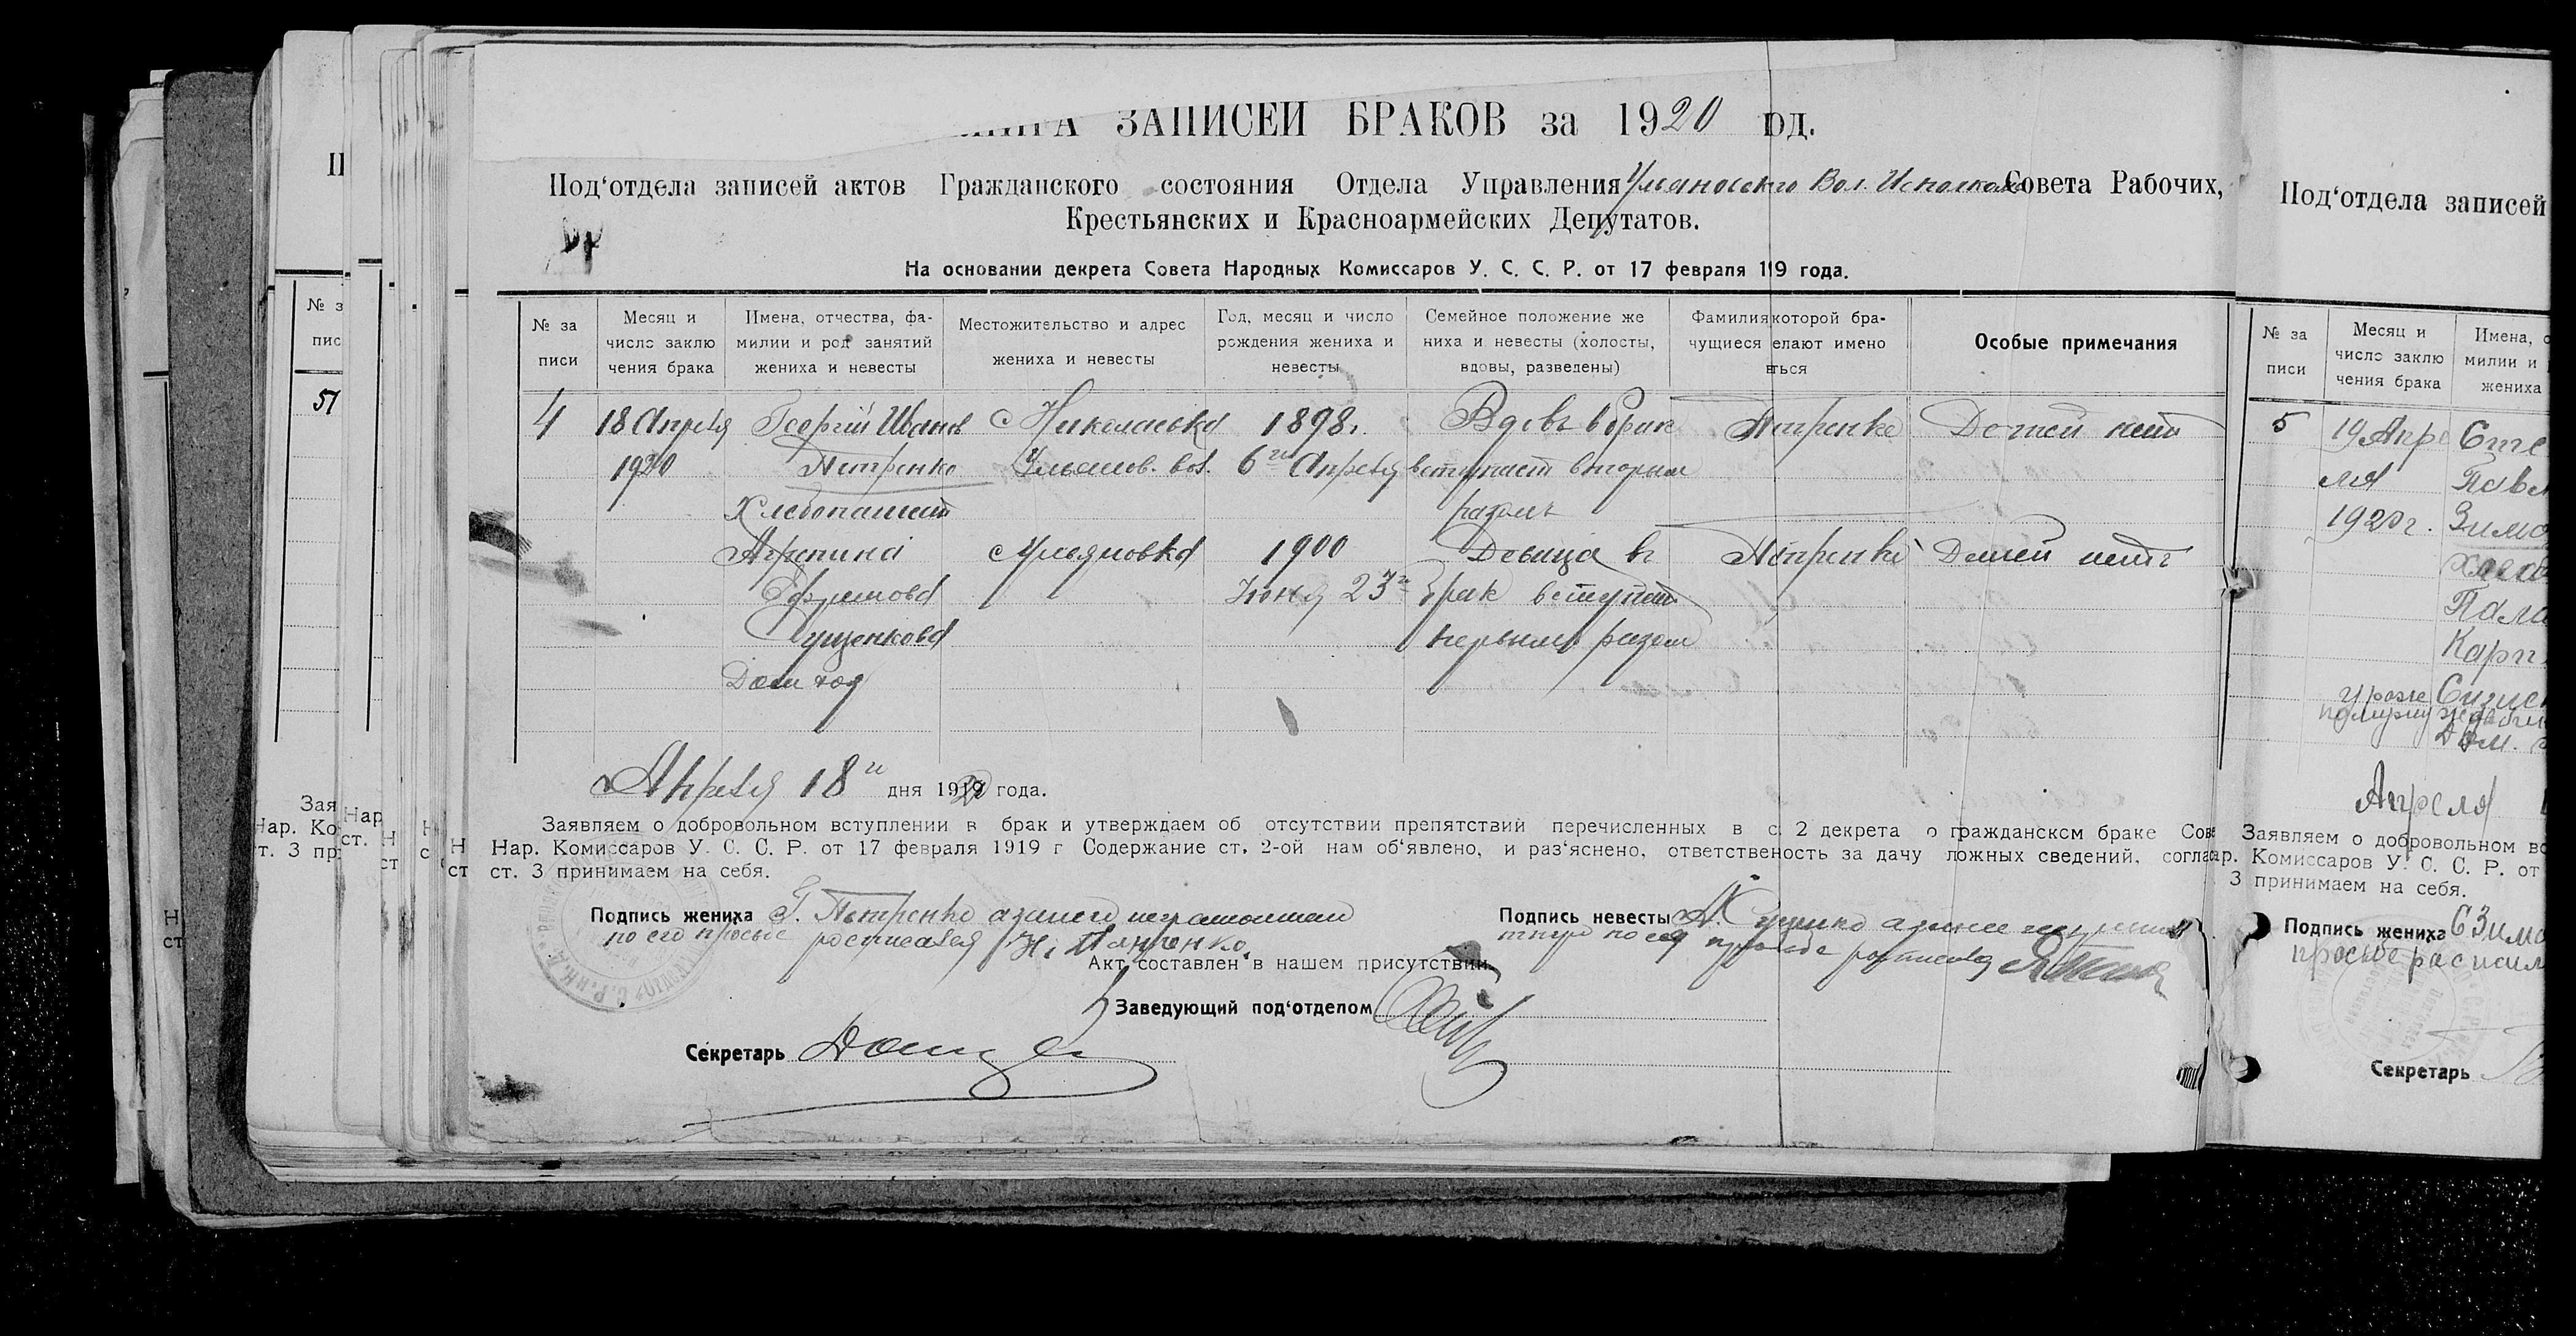 ЗАПИСЕЙ БРАКОВ за 1920 год.
Под'отдела записей актов Гражданского состояния Отдела Управления Ульяновского Вол. Исполкома Совета Рабочих,
Крестьянских и Красноармейских Депутатов.
На основании декрета Совета Народных Комиссаров У. С. С. Р. от 17 февраля 119 года.
№ за
писи
Месяц и
число заклю
чения брака
Имена, отчества, фа-
милии и род занятий
жениха и невесты
Местожительство и адрес
жениха и невесты
Год, месяц и число
рождения жениха и
невесты
Семейное положение же
ниха и невесты (холосты,
вдовы, разведены)
Фамилия которой бра-
чущиеся елают имено
ться
Особые примечания
4 18 Апреля Георгий Иванов с Николаевка 1898 г. Вдовъ в брак Петренко Детей нет
1920 Петренко Ульянов. вол. 6го Апреля вступает вторым
Хлебопашец разом
Агрепина с Ульяновка 1900 Девица въ Петренко Детей нетъ
Ефремова Июня 23го брак вступает
Сущенкова первымъ разом
Дом хоз
Апреля 18го дня 1920 года.
Заявляем о добровольном вступлении в брак и утверждаем об отсутствии препятствий перечисленных в с. 2 декрета о гражданском браке Сове
Нар. Комиссаров У. С. С. Р. от 17 февраля 1919 г Содержание ст. 2-ой нам об'явлено, и раз'яснено, ответственость за дачу ложных сведений, соглас
ст. 3 принимаем на себя.
Подпись жениха Г. Петренко а за него неграмотнаго
по его просьбе росписался
Подпись невесты А. Сущенко а за нее
по ея просьбе росписался
Акт составлен в нашем присутствии
Заведующий под'отделом
Секретарь
Под'отдела записей
№ за
писи
Месяц и
число заклю
чения брака
Имена, о
милии и
жениха
5 19 Апре Сте
ля Павл
1920 г. Зимо
Хлеб
Пала
Карп
Дом.
Апреля
Заявляем о добровольном вс
ар. Комиссаров У. С. С. Р. от
3 принимаем на себя.
Подпись жениха С Зимо
просьбе
Секретарь
№ з
пис
51
Зая
Нар. Ко
ст. 3 пр